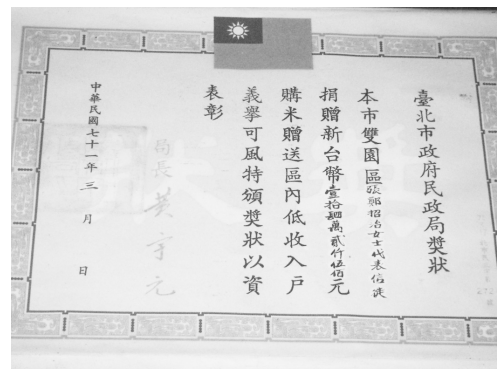 臺北市政府民政局獎狀
本市雙園區張鄭招治女士代表信徒
捐贈新台幣壹拾肆萬貳仟伍佰元
購米贈送區內低收入戶
義舉可風特頒獎狀以資
表彰
局長 黃宇元
中華民國七十一年三月 日